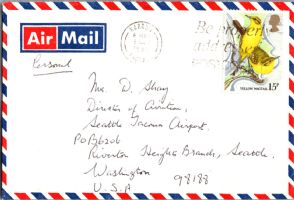 Air Mail
Personal
Be properly
add
YELLOW WAGTAIL 15p
Mr. D. Shay
Director of Aviation,
Seattle Tacoma Airport,
PO Box 68206
Riverton Heights Branch, Seattle,
Washington
98188
U.S.A